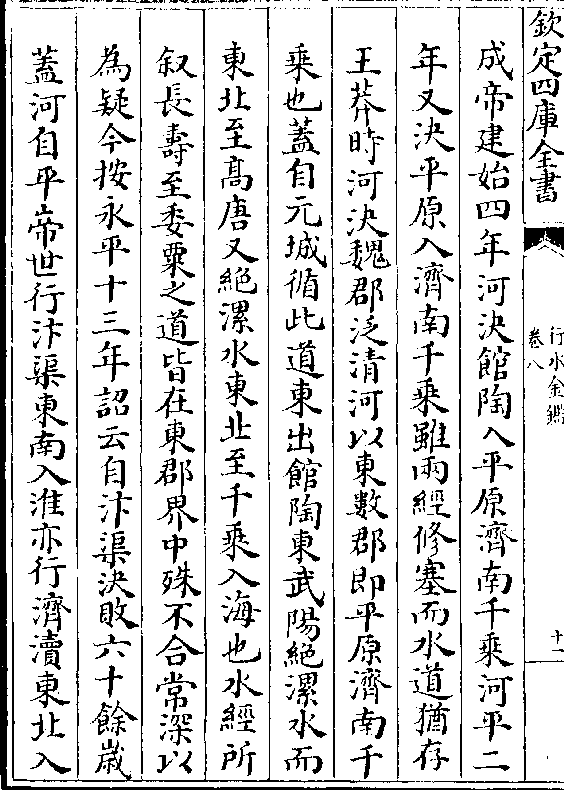 欽定四庫全書
行水金鑑
卷八
十一
成帝建始四年河決館陶入平原濟南千乘河平二
年又決平原入濟南千乘雖兩經修塞而水道猶存
王莽時河決魏郡泛清河以東數郡即平原濟南千
乘也蓋自元城循此道東出館陶東武陽絶漯水而
東北至髙唐又絶漯水東北至千乘入海也水經所
叙長壽至委粟之道皆在東郡界中殊不合常深以
為疑今按永平十三年詔云自汴渠決敗六十餘歳
蓋河自平帝世行汴渠東南入淮亦行濟瀆東北入